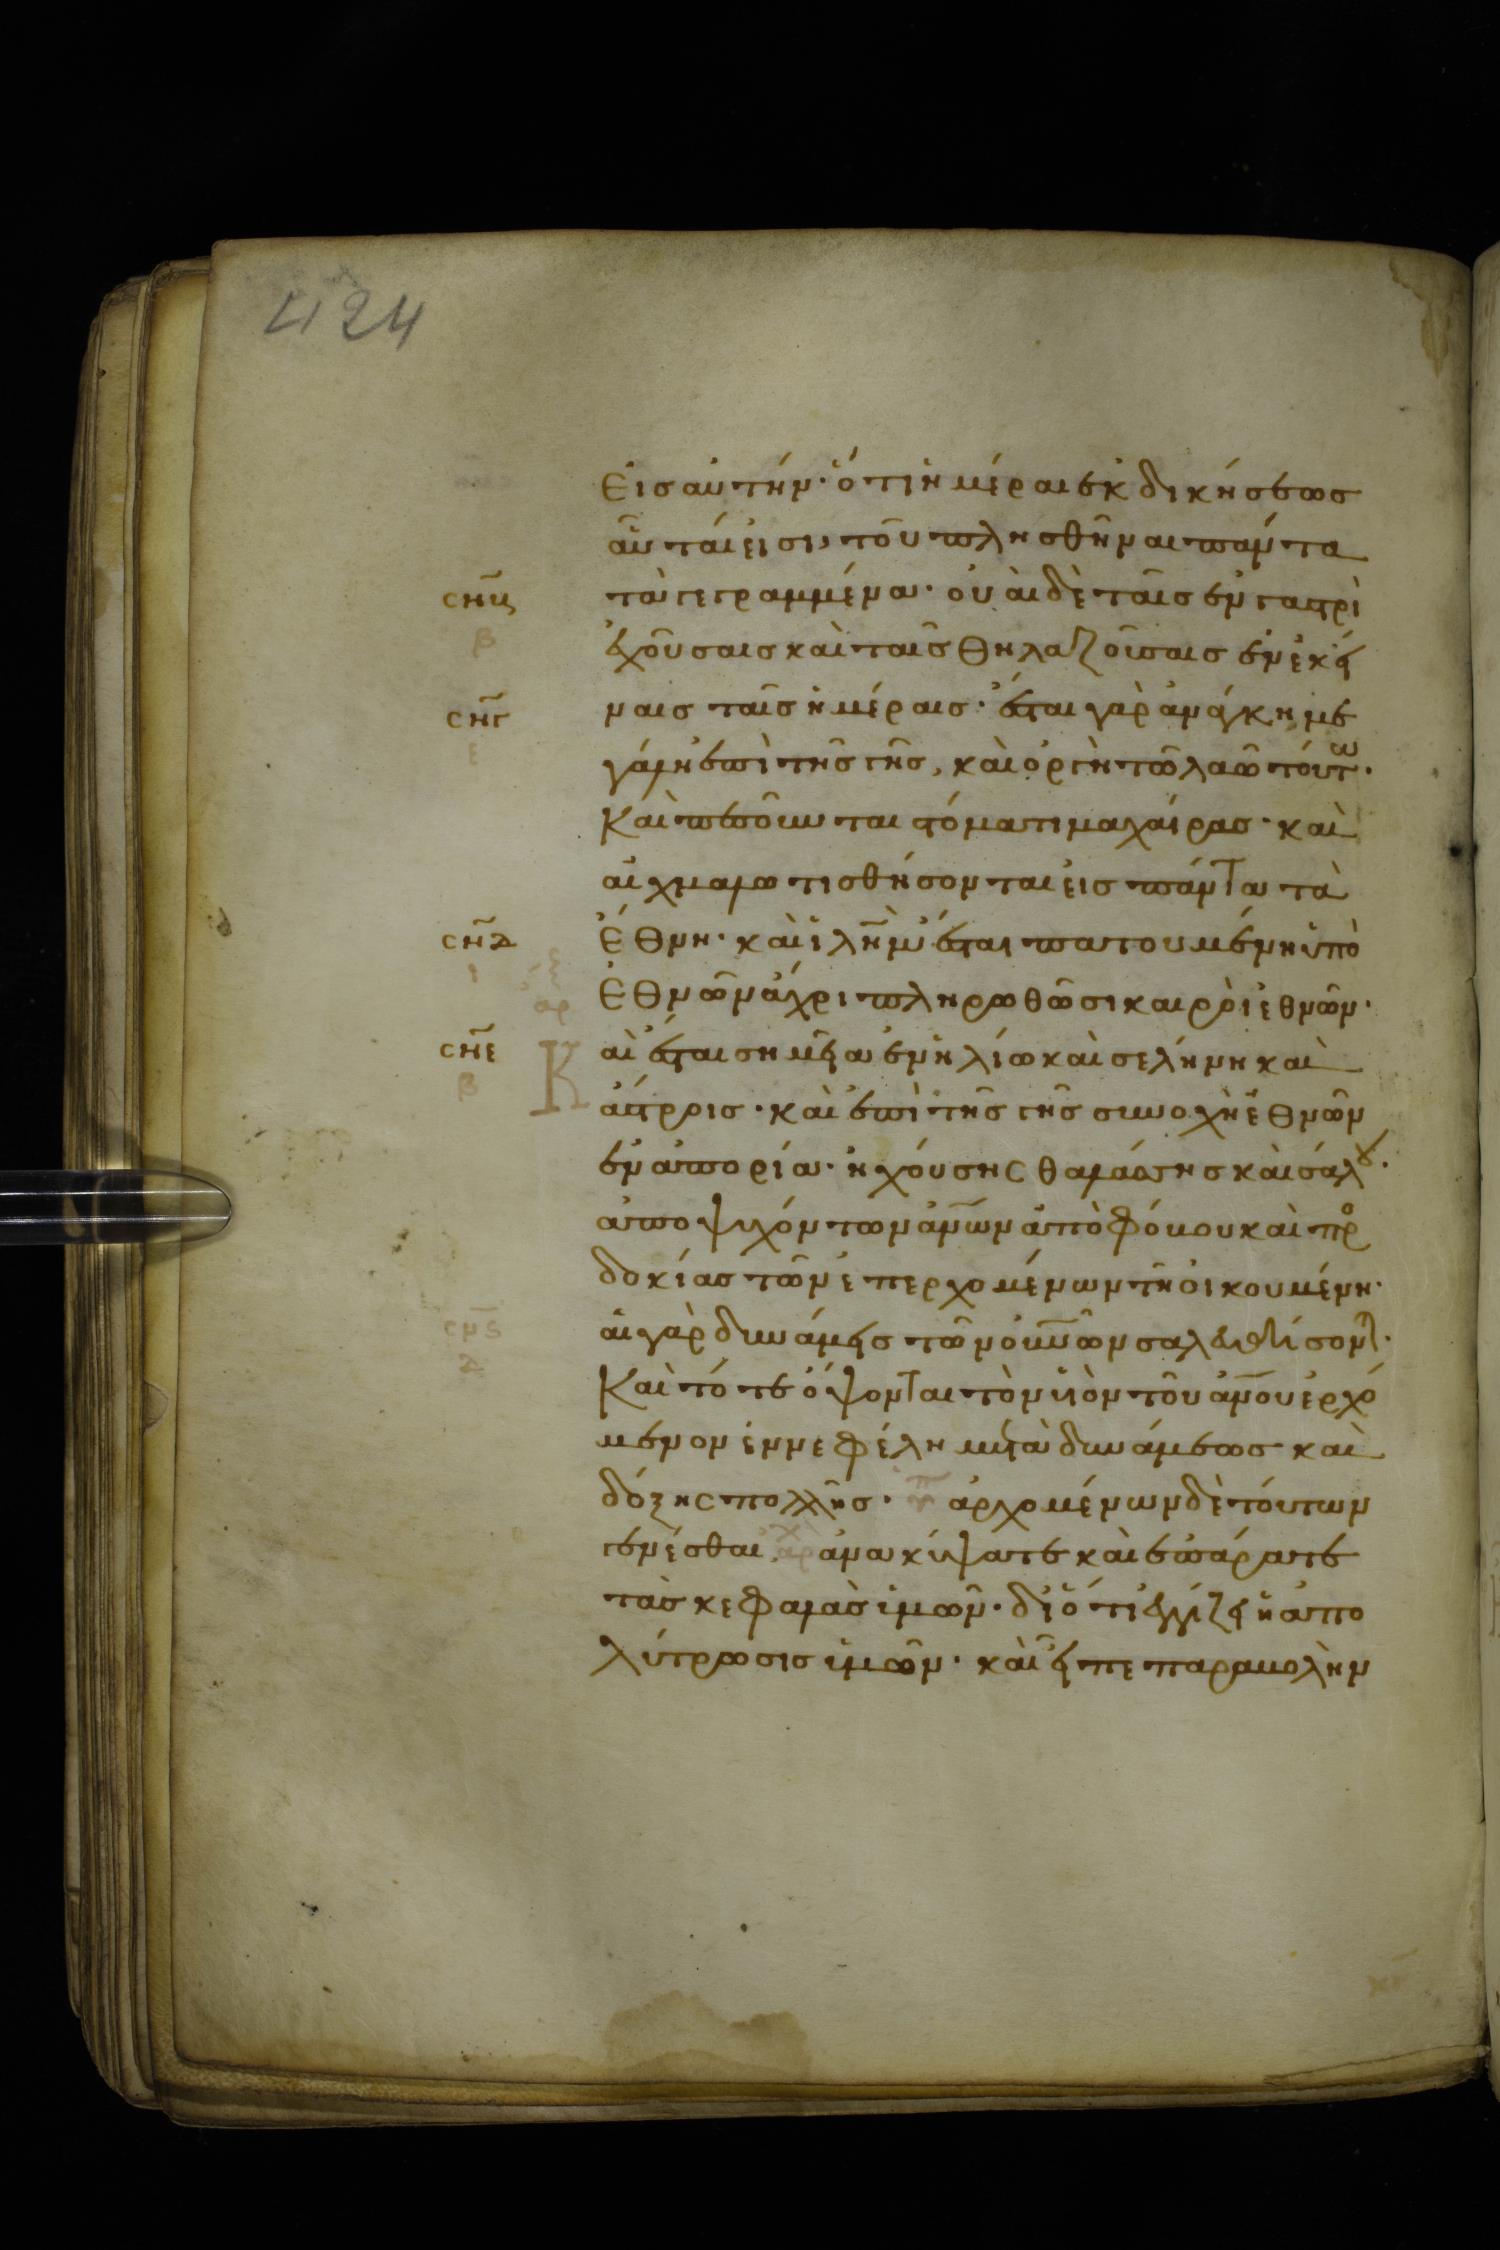 424
εἰς αὐτήν· ὅτι ἡμέραι ἐκδικήσεως
αὗταί εἰσι, τοῦ πλησθῆναι πάντα
τὰ γεγραμμένα· οὐαὶ δὲ ταῖς ἐν γαστρὶ
ἐχούσαις καὶ ταῖς θηλαζούσαις ἐν ἐκεί
ναις ταῖς ἡμέραις· ἔσται γὰρ ἀνάγκη με
γάλη ἐπὶ τῆς γῆς, καὶ ὀργὴ τῶ λαῶ τούτω·
Καὶ πεσοῦνται στόματι μαχαίρας· καὶ
αἰχμαλωτισθήσονται εἰς πάντα τὰ
ἔθνη· καὶ ἰλῆμ ἔσται πατουμένη ὑπὸ
ἐθνῶν ἄχρι πληρωθῶσι καιροὶ ἐθνῶν·
Καὶ ἔσται σημεῖα ἐν ἡλίω καὶ σελήνη καὶ
ἄστροις· καὶ ἐπὶ τῆς γῆς συνοχὴ ἐθνῶν
ἐν ἀπορία· ἠχούσης θαλάσσης καὶ σάλου·
ἀποψυχόντων ἀνων ἀπὸ φόβου καὶ προσ
δοκίας τῶν ἐπερχομένων τῆ οἰκουμένη·
αἱ γὰρ δυνάμεις τῶν οὐνῶν σαλευθήσονται·
Καὶ τότε ὄψονται τὸν υἱὸν τοῦ ἀνου ἐρχό
μενον ἐν νεφέλη μετὰ δυνάμεως καὶ
δόξης πολλῆς· ἀρχομένων δὲ τούτων
γενέσθαι, ἀνακύψατε καὶ ἐπάρατε
τὰς κεφαλὰς ὑμῶν· διότι ἐγγίζει ἡ ἀπο
λύτρωσις ὑμῶν· καὶ εἶπε παραβολὴν